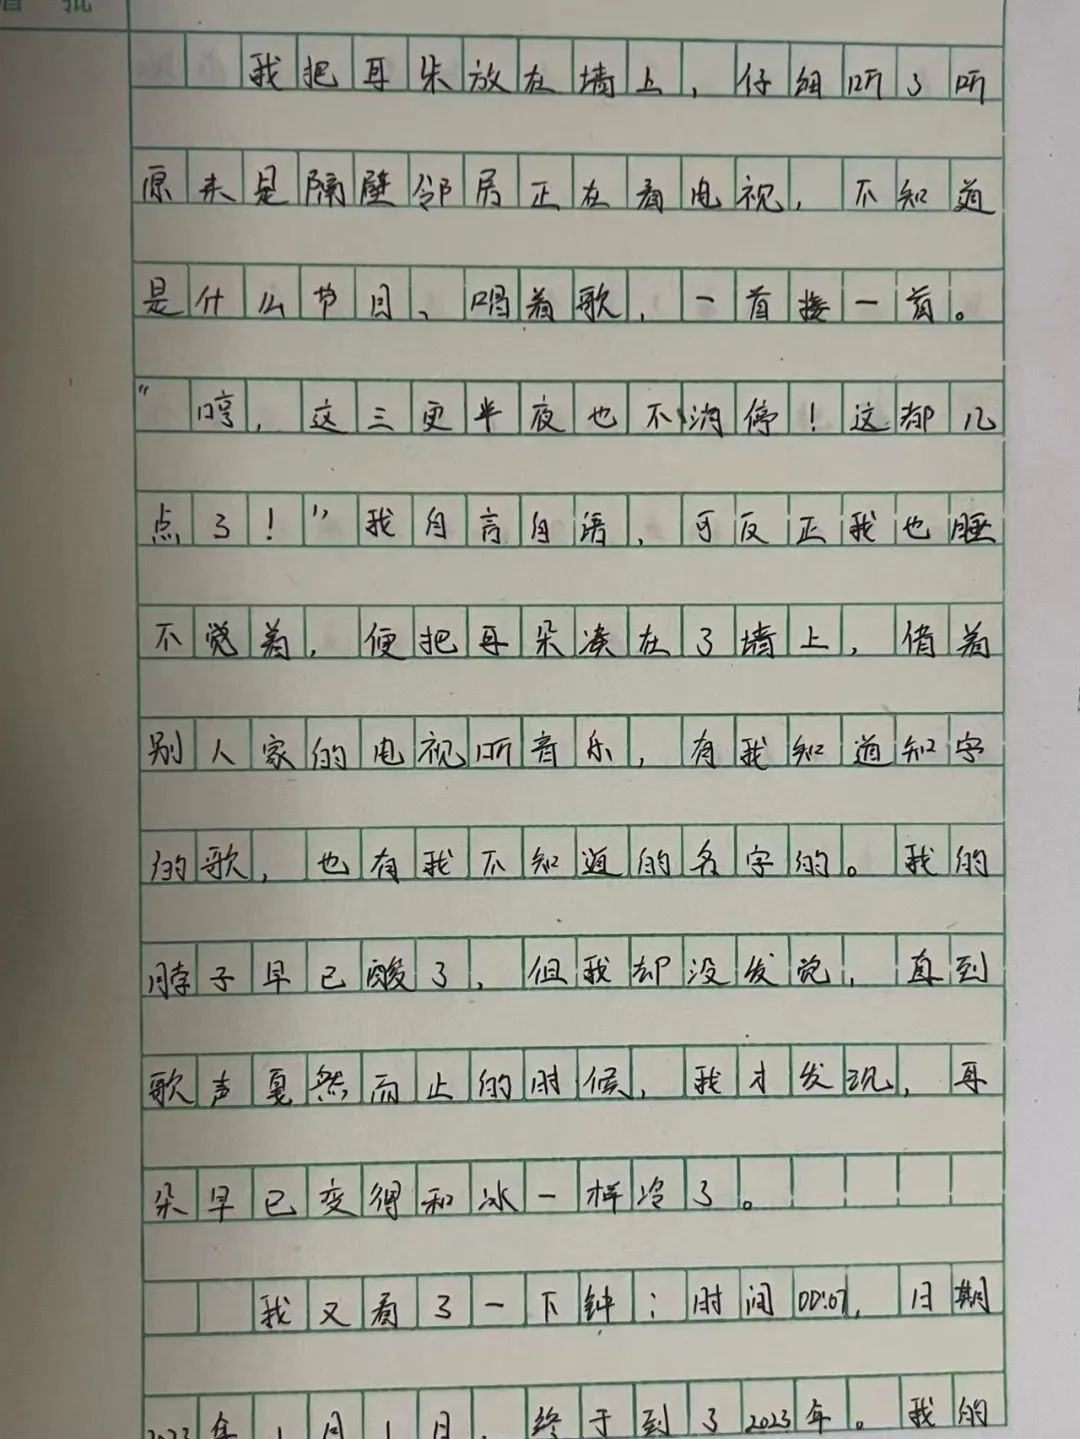 眉批
我把耳朵放在墙上，仔细听了听
原来是隔壁邻居正在看电视，不知道
是什么节目、唱着歌，一首接一首。
“哼，这三更半夜也不消停！这都几
点了！”我自言自语，可反正我也睡
不觉着，便把耳朵凑在了墙上，借着
别人家的电视听音乐，有我知道知字
的歌，也有我不知道的名字的。我的
脖子早已酸了，但我却没发觉，直到
歌声戛然而止的时候，我才发现，耳
朵早已变得和冰一样冷了。
我又看了一下钟；时间00:01，日期
2023年1月1日，终于到了2023年。我的